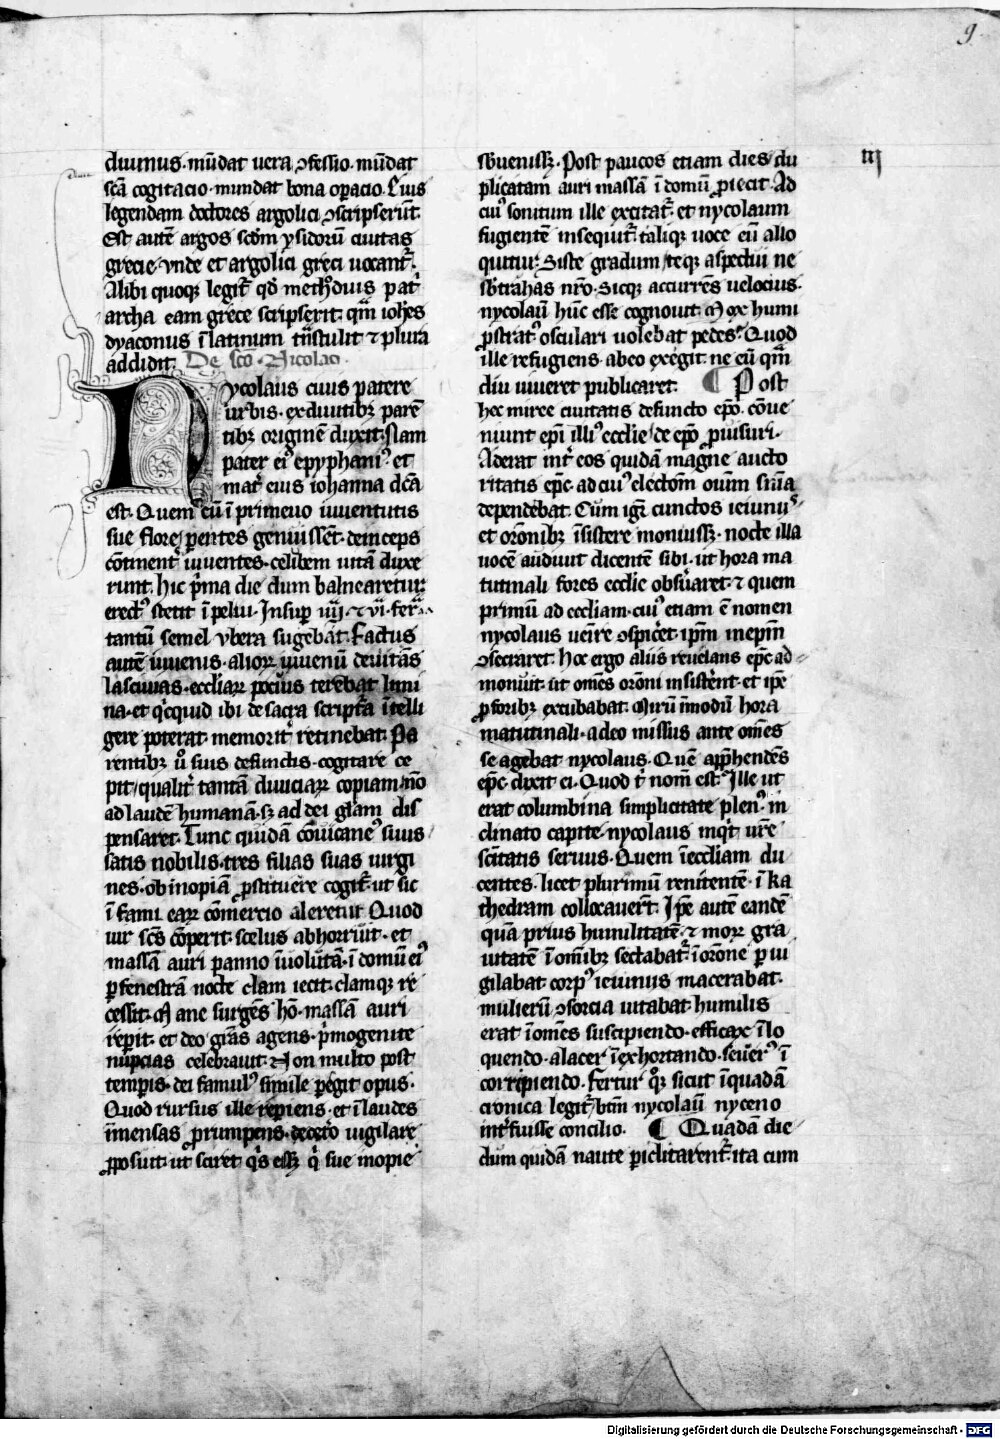 9
iij
diuinus. mu̅dat uera ꝯfessio. mu̅dat
sc̅a cogitacio. mundat bona oꝑacio. Eius
legendam doctores argolici ꝯscripseru̅t.
Est aute̅ argos scd̅m ysidoru̅ ciuitas
grecie. vnde et argolici greci uocant᷑.
Alibi quoqꝫ legit᷑ qd̅ methodius pat͛
archa eam grece scripserit. qua̅ ioh̅es
dyaconus i̅ latinum tra̅stulit ⁊ plura
addidit. De sc̅o Nicolao.
Nycolaus ciuis patere
urbis. ex diuitibꝫ pare̅
tibꝫ origine̅ duxit. Nam
pater eiꝰ epyphaniꝰ et
mat͛ eius iohanna dc̅a
est. Quem cu̅ i̅ primeuo iuuentutis
sue flore ꝑentes genuisse̅t. deinceps
co̅tinent͛ uiuentes. celibem uita̅ duxe
runt. Hic p͛ma die dum balnearetur
erectꝰ stetit i̅ pelui. Insuꝑ iiij. ⁊ vi. feria
tantu̅ semel vbera sugebat. Factus
aute̅ iuuenis. alioꝝ iuuenu̅ deuita̅s
lasciuias. eccl̅iaꝝ pociꝰ terebat limi
na. et q͛cquid ibi de sacra scriptu͛a i̅telli
gere poterat memorit͛ retinebat. Pa
rentibꝫ u͛o suis defunctis. cogitare ce
pit / qualit͛ tanta̅ diuiciaꝝ copiam / no̅
ad laude̅ humana̅. sꝫ ad dei gl̅am dis
pensaret. Tunc quida̅ co̅uicaneꝰ suus
satis nobilis. tres filias suas uirgi
nes. ob inopia̅ ꝓstituere cogit᷑. ut sic
i̅fami eaꝝ co̅mercio aleretur. Quod
uir sc̅s co̅perit. scelus abhorruit. et
massa̅ auri panno i̅uoluta̅. i̅ domu̅ eiꝰ
ꝑ fenestra̅ nocte clam iecit. clamqꝫ re
cessit. Mane surge̅s ho̅. massa̅ auri
reperit. et deo gra̅s agens. p͛mogenite
nupcias celebrauit. Non multo post
tempis. dei famulꝰ simile ꝑegit opus.
Quod rursus ille reperiens. et i̅ laudes
i̅mensas prrumpens. decet͛o uigilare
ꝓposuit. ut sciret q͛s essꝫ q͛ sue inopie
sb̅uenissꝫ. Post paucos etiam dies / du
plicatam auri massa̅ i̅ domu̅ ꝓiecit. Ad
cuiꝰ sonitum ille excitat᷑. et nycolaum
fugiente̅ insequit᷑. taliqꝫ uoce eu̅ allo
quitur. Siste gradum / teqꝫ aspectui ne
sb̅trahas nr̅o. Sicqꝫ accurre̅s uelocius.
nycolau̅ hu̅c esse cognouit. Mox humi
ꝓstratꝰ osculari uolebat pedes. Quod
ille refugiens. ab eo exegit. ne eu̅ q͛m
diu uiueret publicaret. ¶ Post
hec miree ciuitatis defuncto ep̅o. co̅ue
niunt ep̅i illiꝰ eccl̅ie / de ep̅o ꝓuisuri.
Aderat int͛ eos quida̅ magne aucto
ritatis ep̅c. ad cuiꝰ electo̅m oi̅um sn̅ia
dependebat. Cum igi͛ cunctos ieiuniis
et or̅onibꝫ i̅sistere monuissꝫ. nocte illa
uoce̅ audiuit dicente̅ sibi. ut hora ma
tutinali fores eccl̅ie obs͛uaret. ⁊ quem
primu̅ ad eccl̅iam. cuiꝰ etiam e̅ nomen
nycolaus uenire ꝯspic͛et. ip̅m in ep̅m
ꝯsecraret. Hoc ergo aliis reuelans ep̅c ad
monuit. ut om̅es or̅oni insist͛ent. et ip̅e
ꝓ foribꝫ excubabat. Miru̅ i̅modu̅ hora
matutinali. a deo missus ante om̅es
se agebat nycolaus. Que̅ app͛hende̅s
ep̅c. dixit ei. Quod t͛ nom̅ est. Ille ut
erat columbina simplicitate plenꝰ. in
clinato capite. nycolaus inq͛t. ur̅e
sc̅itatis seruus. Quem i̅ eccl̅iam du
centes. licet plurimu̅ renitente̅. i̅ ka
thedram collocaueru̅t. Ip̅e aute̅ eande̅
qua̅ prius humilitate̅. ⁊ moꝝ gra
uitate̅ i̅ om̅ibꝫ sectabat᷑. i̅ or̅one ꝑui
gilabat. corpꝰ ieiuniis macerabat.
mulieru̅ ꝯsorcia uitabat. humilis
erat i̅ om̅es suscipiendo. efficax i̅ lo
quendo. alacer i̅ exhortando. seuerꝰ i̅
corripiendo. Fertur qꝫ sicut i̅ quada̅
cronica legit᷑ / bt̅m nycolau̅ nyceno
int͛fuisse concilio. ¶ Quada̅ die
dum quida̅ naute ꝑiclitarent᷑. ita cum
Digitalisierung gefördert durch die Deutsche Forschungsgemeinschaft - DFG